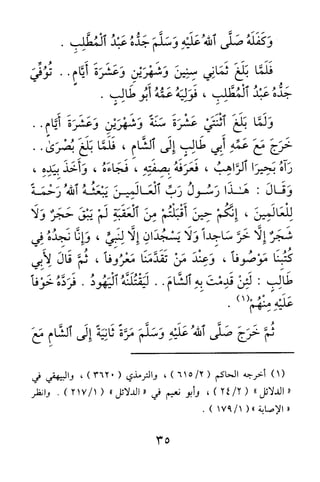 وَكَفَلَهُ صَلَّى ٱللهُ عَلَيْهِ وَسَلَّمَ جَدُّهُ عَبْدُ ٱلْمُطَّلِبِ .
فَلَمَّا بَلَغَ ثَمَانِيَ سِنِينَ وَشَهْرَيْنِ وَعَشَرَةَ أَيَّامٍ . . تُوُفِّيَ
جَدُّهُ عَبْدُ ٱلْمُطَّلِبِ ، فَوَلِيَهُ عَمُّهُ أَبُو طَالِبٍ .
وَلَمَّا بَلَغَ ٱثْنَتَيْ عَشْرَةَ سَنَةً وَشَهْرَيْنِ وَعَشَرَةَ أَيَّامٍ . .
خَرَجَ مَعَ عَمِّهِ أَبِي طَالِبٍ إِلَى ٱلشَّامِ ، فَلَمَّا بَلَغَ بُصْرَىٰ . .
رَآهُ بَحِيرَا ٱلرَّاهِبُ ، فَعَرَفَهُ بِصِفَتِهِ ، فَجَاءَهُ ، وَأَخَذَ بِيَدِهِ ،
وَقَالَ : هَـٰذَا رَسُولُ رَبِّ ٱلْعَالَمِينَ يَبْعَثُهُ ٱللهُ رَحْمَةً
لِلْعَالَمِينَ ، إِنَّكُمْ حِينَ أَقْبَلْتُمْ مِنَ ٱلْعَقَبَةِ لَمْ يَبْقَ حَجَرٌ وَلَا
شَجَرٌ إِلَّا خَرَّ سَاجِداً وَلَا يَسْجُدَانِ إِلَّا لِنَبِيٍّ ، وَإِنَّا نَجِدُهُ فِي
كُتُبِنَا مَوْصُوفاً ، وَعِنْدَ مَنْ تَقَدَّمَنَا مَعْرُوفاً ، ثُمَّ قَالَ لِأَبِي
طَالِبٍ : لَئِنْ قَدِمْتَ بِهِ ٱلشَّامَ . . لَيَقْتُلَنَّهُ ٱلْيَهُودُ . فَرَدَّهُ خَوْفاً
عَلَيْهِ مِنْهُمْ(١) .
ثُمَّ خَرَجَ صَلَّى ٱللهُ عَلَيْهِ وَسَلَّمَ مَرَّةً ثَانِيَةً إِلَى ٱلشَّامِ مَعَ
(١) أخرجه الحاكم ( ٦١٥/٢ ) ، والترمذي ( ٣٦٢٠ ) ، والبيهقي في
« الدلائل » ( ٢٤/٢ ) ، وأبو نعيم في « الدلائل » ( ٢١٧/١ ) . وانظر
« الإصابة » ( ١٧٩/١ ) .
٣٥